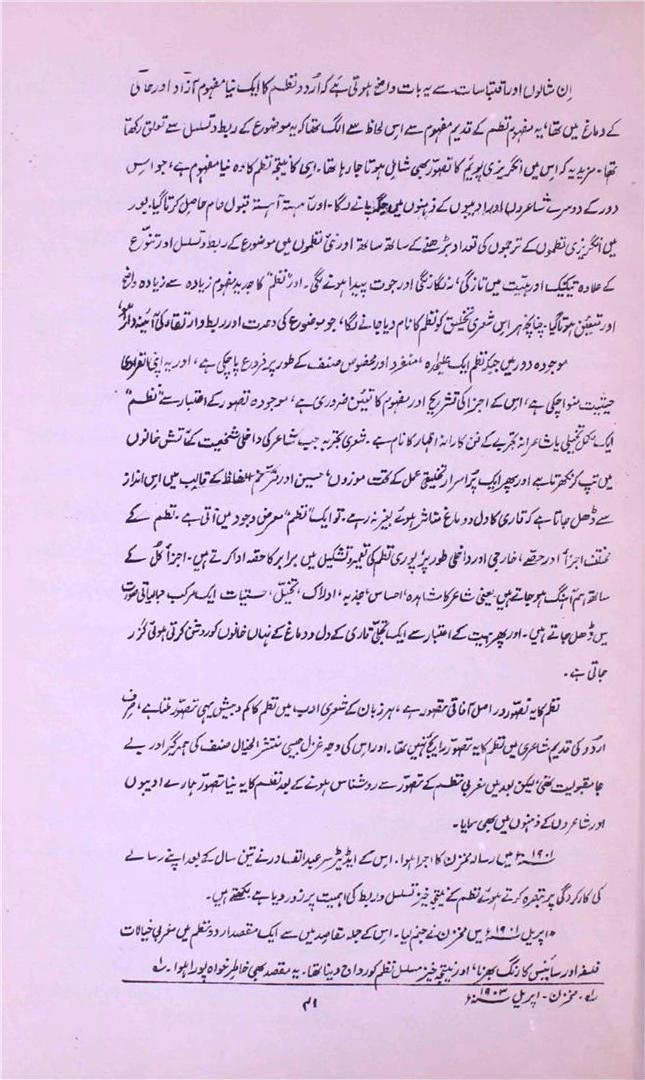 اِن مثالوں اور اقتباسات سے یہ بات واضح ہوتی ہے کہ اُردو نظم کا ایک نیا مفہوم آزاد اور حالی
کے دماغ میں تھا، یہ مفہوم نظم کے قدیم مفہوم سے اس لحاظ سے الگ تھا کہ یہ موضوع کے ربط و تسلسل سے تعلق رکھتا
تھا۔ مزید یہ کہ اس میں انگریزی پویم کا تصوّر بھی شامل ہوتا جا رہا تھا۔ اسی کا نتیجہ نظم کا وہ نیا مفہوم ہے، جو اس
دور کے دوسرے شاعروں اور ادیبوں کے ذہنوں میں جگہ پانے لگا۔ اور آہستہ آہستہ قبول عام حاصل کرتا گیا، بعد
میں انگریزی نظموں کے ترجموں کی تعداد بڑھنے کے ساتھ ساتھ اور نئی نظموں میں موضوع کے ربط و تسلسل اور تنوّع
کے علاوہ تیکنیک اور ہیئت میں تازگی، رنگا رنگی اور جدت پیدا ہونے لگی۔ اور "نظم" کا جدید مفہوم زیادہ سے زیادہ واضح
اور متعیّن ہوتا گیا۔ چنانچہ ہر اس شعری تخلیق کو نظم کا نام دیا جانے لگا، جو موضوع کی وحدت اور ربط و ارتقاء کی آئینہ دار ہو،
موجودہ دور میں جبکہ نظم ایک علیٰحدہ، منفرد اور مخصوص صنف کے طور پر فروغ پا چکی ہے، اور یہ اپنی انفرادی
حیثیت منوا چکی ہے، اس کے اجزا کی تشریح اور مفہوم کا تعیّن ضروری ہے، موجودہ تصور کے اعتبار سے "نظم"
ایک مکمل تخیلی یا شاعرانہ تجربے کے فن کارانہ اظہار کا نام ہے۔ شعری تجربہ جب شاعر کی داخلی شخصیت کے آتش خانوں
میں تپ کر نکھرتا ہے اور پھر ایک پُراسرار تخلیقی عمل کے تحت موزوں، حسین اور مترنم الفاظ کے قالب میں اس انداز
سے ڈھل جاتا ہے کہ قاری کا دل و دماغ متاثر ہوئے بغیر نہ رہے۔ تو ایک "نظم" معرض وجود میں آتی ہے۔ نظم کے
مختلف اجزا اور حصّے، خارجی اور داخلی طور پر پوری نظم کی تعمیر و تشکیل میں برابر کا حصّہ ادا کرتے ہیں۔ اجزا کُل کے
ساتھ ہم آہنگ ہو جاتے ہیں یعنی شاعر کا مشاہدہ، احساس، جذبہ، ادراک، تخیّل، حسّیات ایک مرکب جمالیاتی صورت
میں ڈھل جاتے ہیں۔ اور پھر ہیئت کے اعتبار سے ایک تجلّی قاری کے دل و دماغ کے نہاں خانوں کو روشن کرتی ہوئی گزر
جاتی ہے۔
نظم کا یہ تصوّر در اصل آفاقی تصّور ہے، ہر زبان کے شعری ادب میں نظم کا کم و بیش یہی تصوّر ملتا ہے، صرف
اردو کی قدیم شاعری میں نظم کا یہ تصوّر رائج نہیں تھا۔ اور اس کی وجہ غزل جیسی منتشر الخیال صنف کی ہمہ گیر اور بے
جا مقبولیت تھی لیکن بعد میں مغربی نظم کے تصوّر سے روشناس ہونے کے بعد نظم کا یہ نیا تصوّر ہمارے ادیبوں
اور شاعروں کے ذہنوں میں بھی سمایا۔
۱۹۰۱ء میں رسالہ مخزن کا اجرا ہوا۔ اس کے ایڈیٹر سر عبد القادر نے تین سال کے بعد اپنے رسالے
کی کارکردگی پر تبصرہ کرتے ہوئے نظم کے نتیجہ خیز تسلسل و ربط کی اہمیت پر زور دیا ہے لکھتے ہیں۔
"اپریل ۱۹۰۱ء میں مخزن نے جنم لیا۔ اس کے جملہ مقاصد میں سے ایک مقصد اردو نظم میں مغربی خیالات
فلسفہ اور سائینس کا رنگ بھرنا، اور نتیجہ خیز مسلسل نظم کو رواج دینا تھا۔ یہ مقصد بھی خاطر خواہ پورا ہوا۔ ؎۱
؎۱۔ مخزن۔ اپریل ۱۹۰۳ء
۴۱